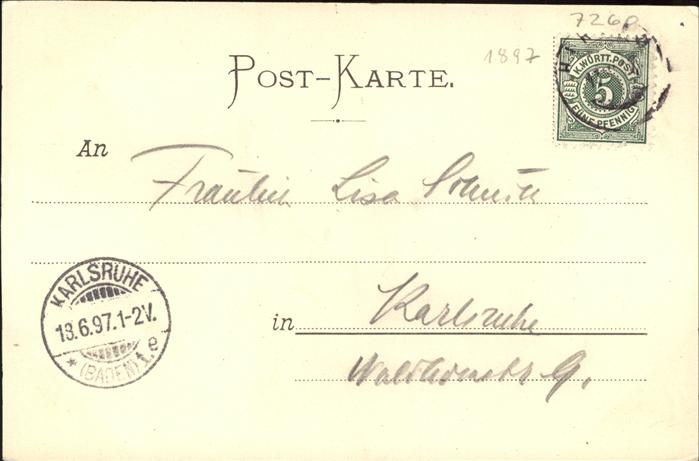 7260
1897
K.WÜRTT.POST
5
FÜNF PFENNIG
POST-KARTE.
An
Fräulein Lisa Schmitt
KARLSRUHE
13.6.97.1-2V.
(BADEN) 1.e
in Karlsruhe